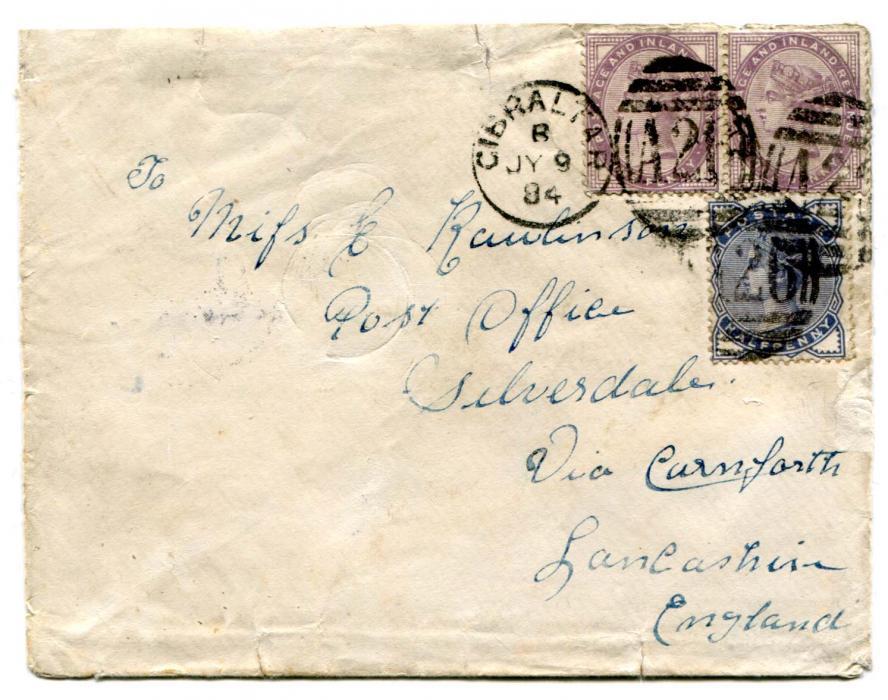 GIBRALTAR
B
JY 9
84
A26
POSTAGE AND INLAND REV
AGE AND INLAND REVENUE
A26
POSTAGE
HALFPENNY
To
Miss E Rawlinson
Post Office
Silverdale.
Via Carnforth
Lancashire
England